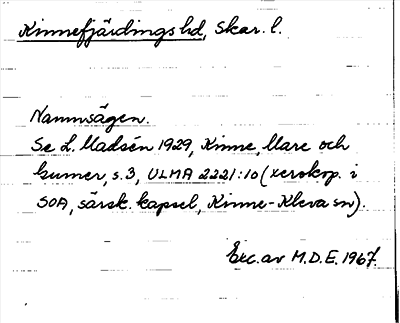 Kinnefjärdings hd, Skar. l.
Namnsägen.
Se L. Madsén 1929, Kinne, Mare och
Gumer, s. 3, ULMA 2221:10 (xerokop. i
SOA, särsk. kapsel, Kinne-Kleva sn).
Exc. av M.D.E. 1967.